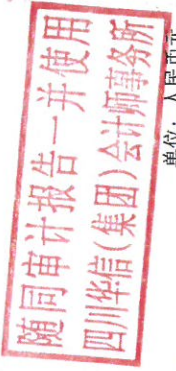 随同审计报告一并使用
四川华信(集团)会计师事务所
单位：人民币元